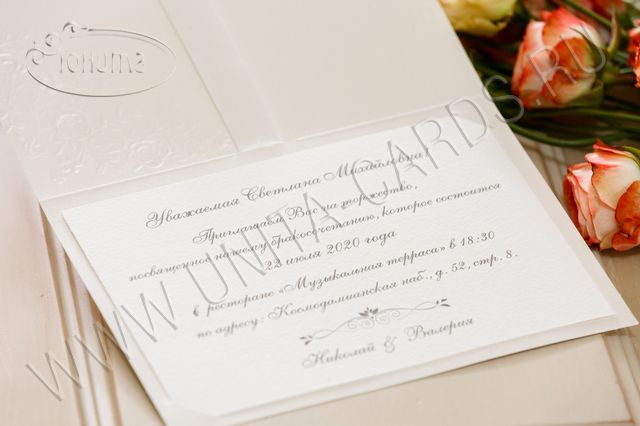 Юнита
Уважаемая Светлана Михайловна!
Приглашаем Вас на торжество,
посвященное нашему бракосочетанию, которое состоится
22 июля 2020 года
в ресторане «Музыкальная терраса» в 18:30
по адресу: Космодамианская наб., д. 52, стр. 8.
Николай & Валерия
WWW.UNITA-CARDS.RU